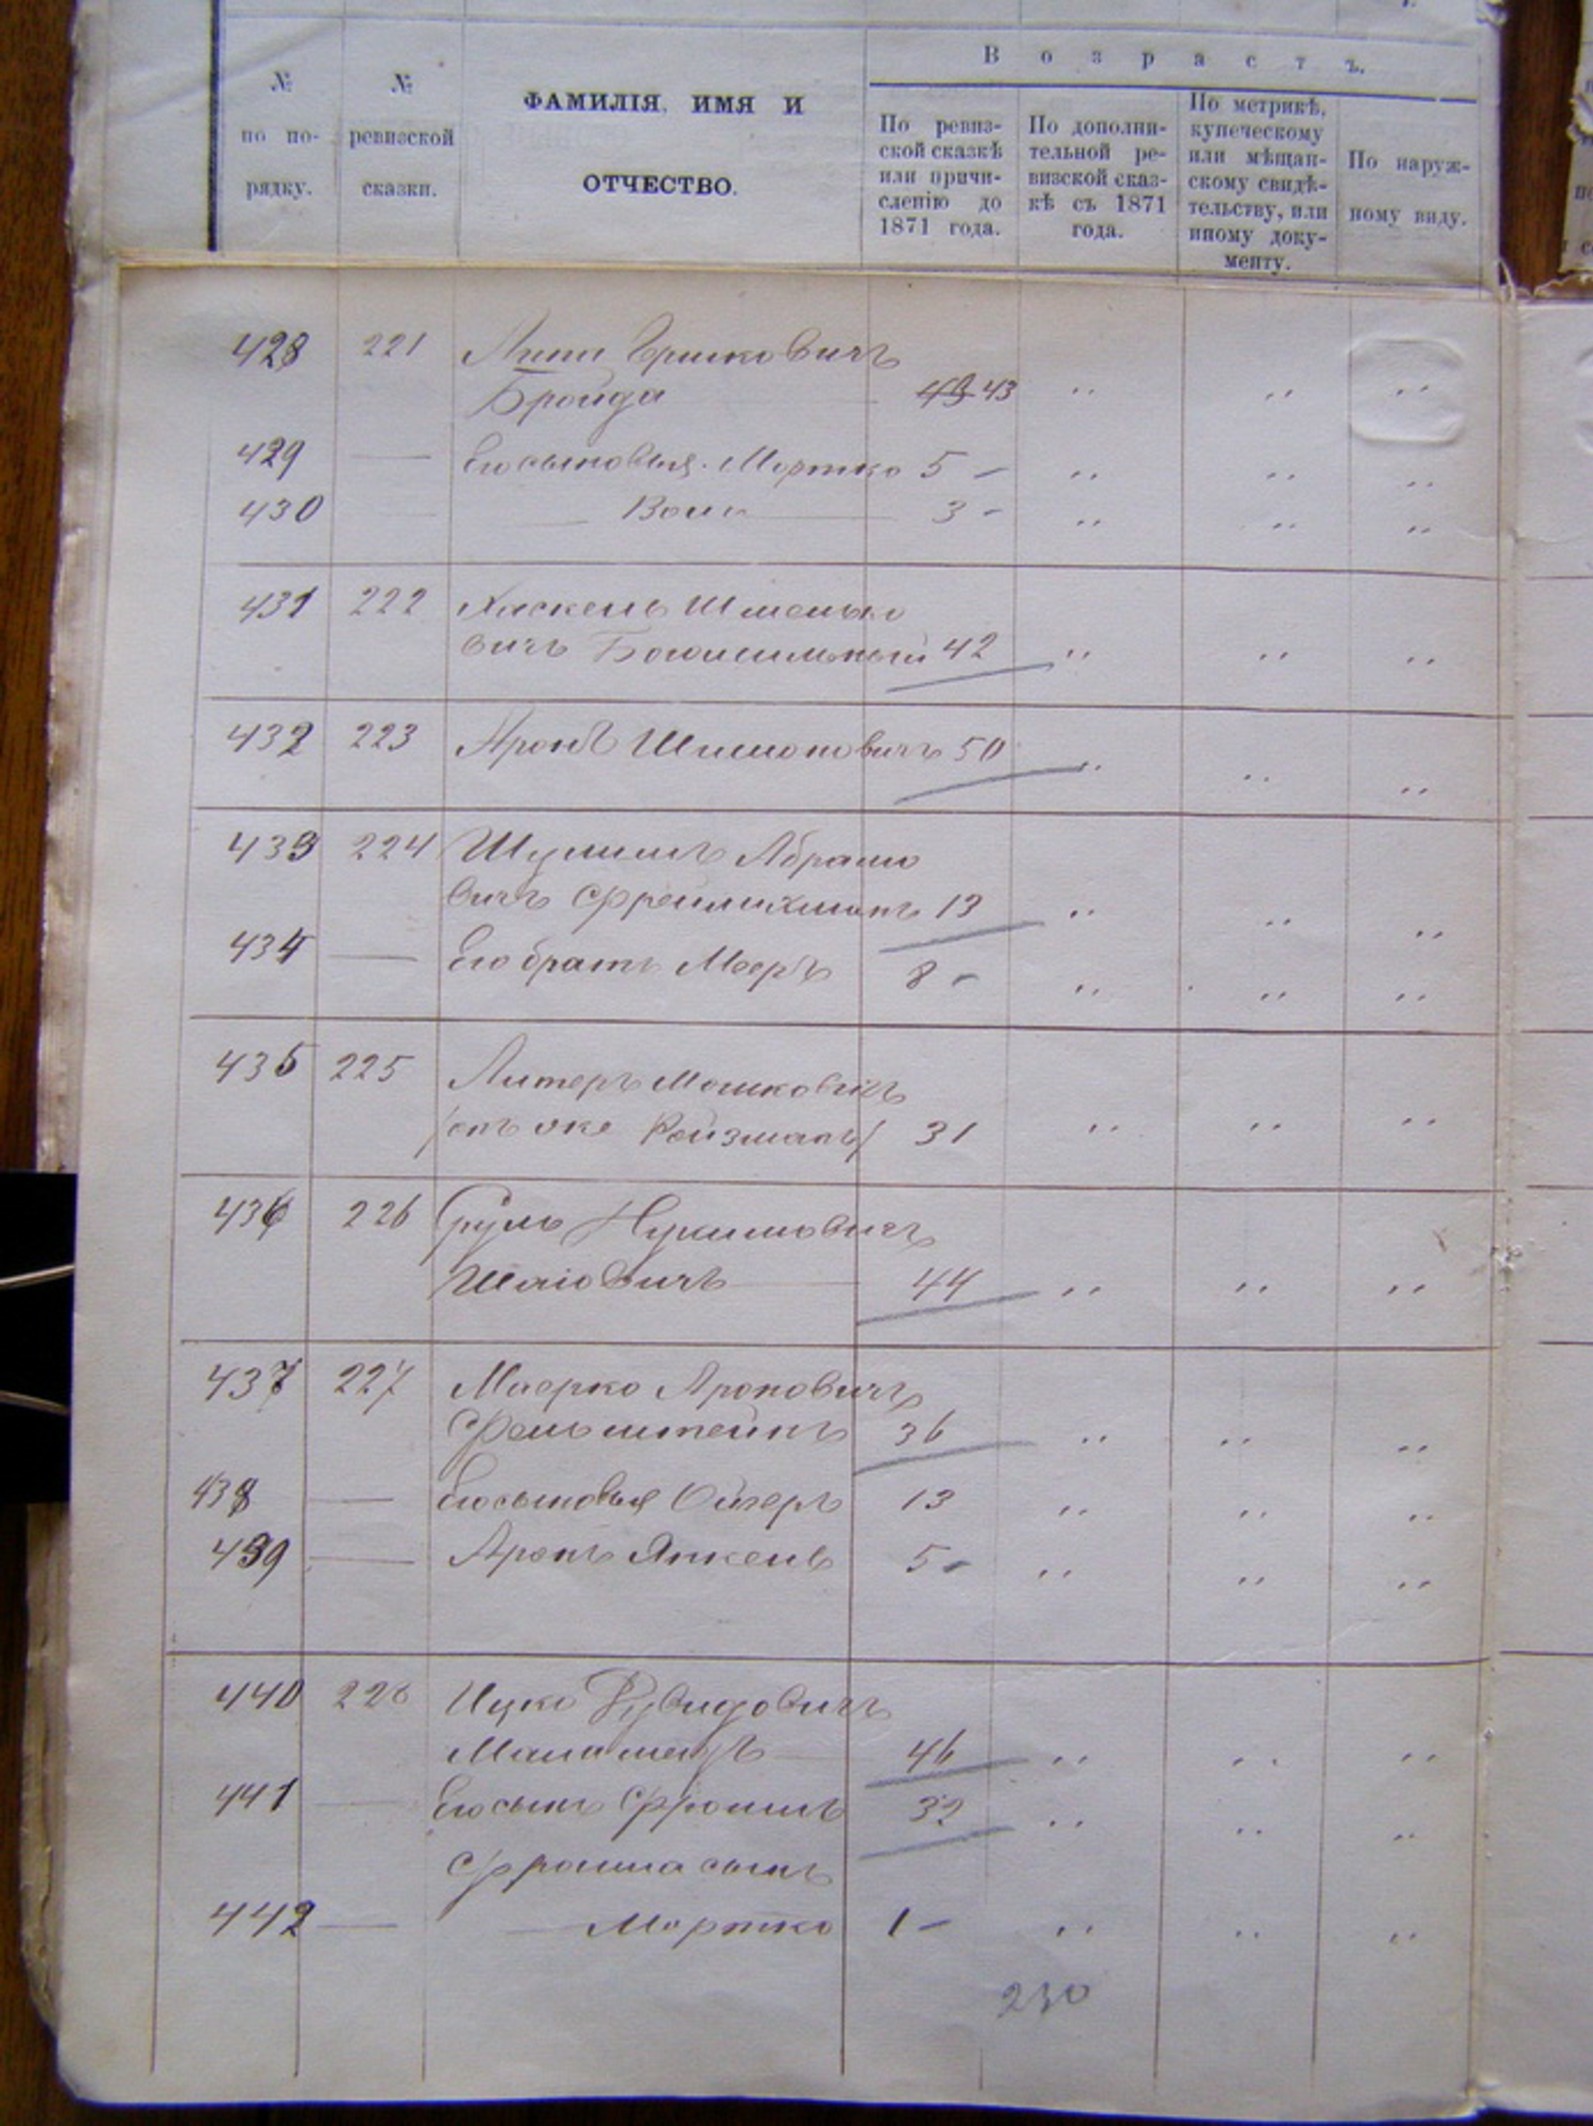 Возрастъ.
№ по по-
рядку.
№ ревизской
сказки.
ФАМИЛІЯ, ИМЯ И
ОТЧЕСТВО.
По ревиз-
ской сказкѣ
или причи-
сленію до
1871 года.
По дополни-
тельной ре-
визской сказ-
кѣ съ 1871
года.
По метрикѣ,
купеческому
или мѣщан-
скому свидѣ-
тельству, или
иному доку-
менту.
По наруж-
ному виду.
428 221
Бройда 43 43 " " "
429 — Его сыновья. Мортко 5 – " " "
430 — — 3 – " " "
431 222 Хаскель Шмелько
вичъ 42 " " "
432 223 Аронъ Шимоновичъ 50 " " "
433 224 Шулимъ Абрамо
вичъ Фрейлихманъ 13 " " "
434 — Его братъ Мееръ 8 – " " "
435 225 Литеръ Мошковичъ
/онъ же Ройзманъ/ 31 " " "
436 226 Сруль Нухимовичъ
Шаіовичъ 44 " " "
437 227 Маерко Ароновичъ
Фельштейнъ 36 " " "
438 — Его сыновья Ойзеръ 13 " " "
439 — Аронъ Янкель 5 – " " "
440 228 Ицко Дувидовичъ
46 " " "
441 — Его сынъ Фроимъ 32 " " "
Фроима сынъ
442 — — Мортко 1 – " " "
230